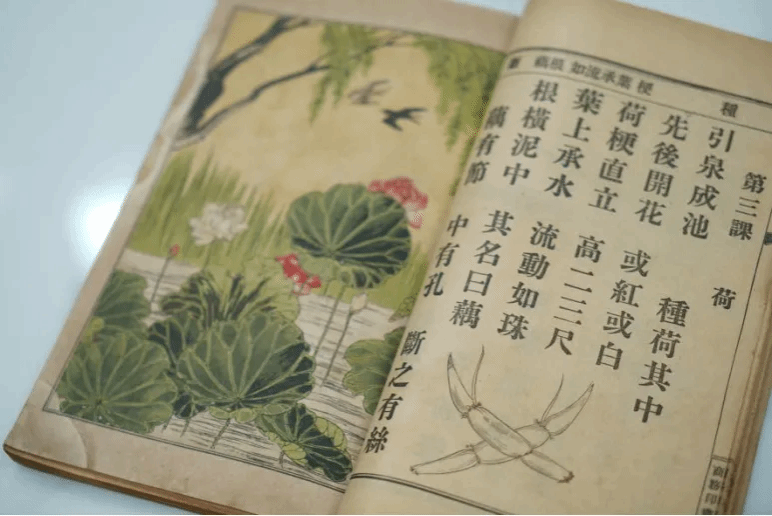 種 梗 葉承流如 根藕
第三課 荷
引泉成池 種荷其中
先後開花 或紅或白
荷梗直立 高二三尺
葉上承水 流動如珠
根橫泥中 其名曰藕
藕有節 中有孔 斷之有絲
商務印